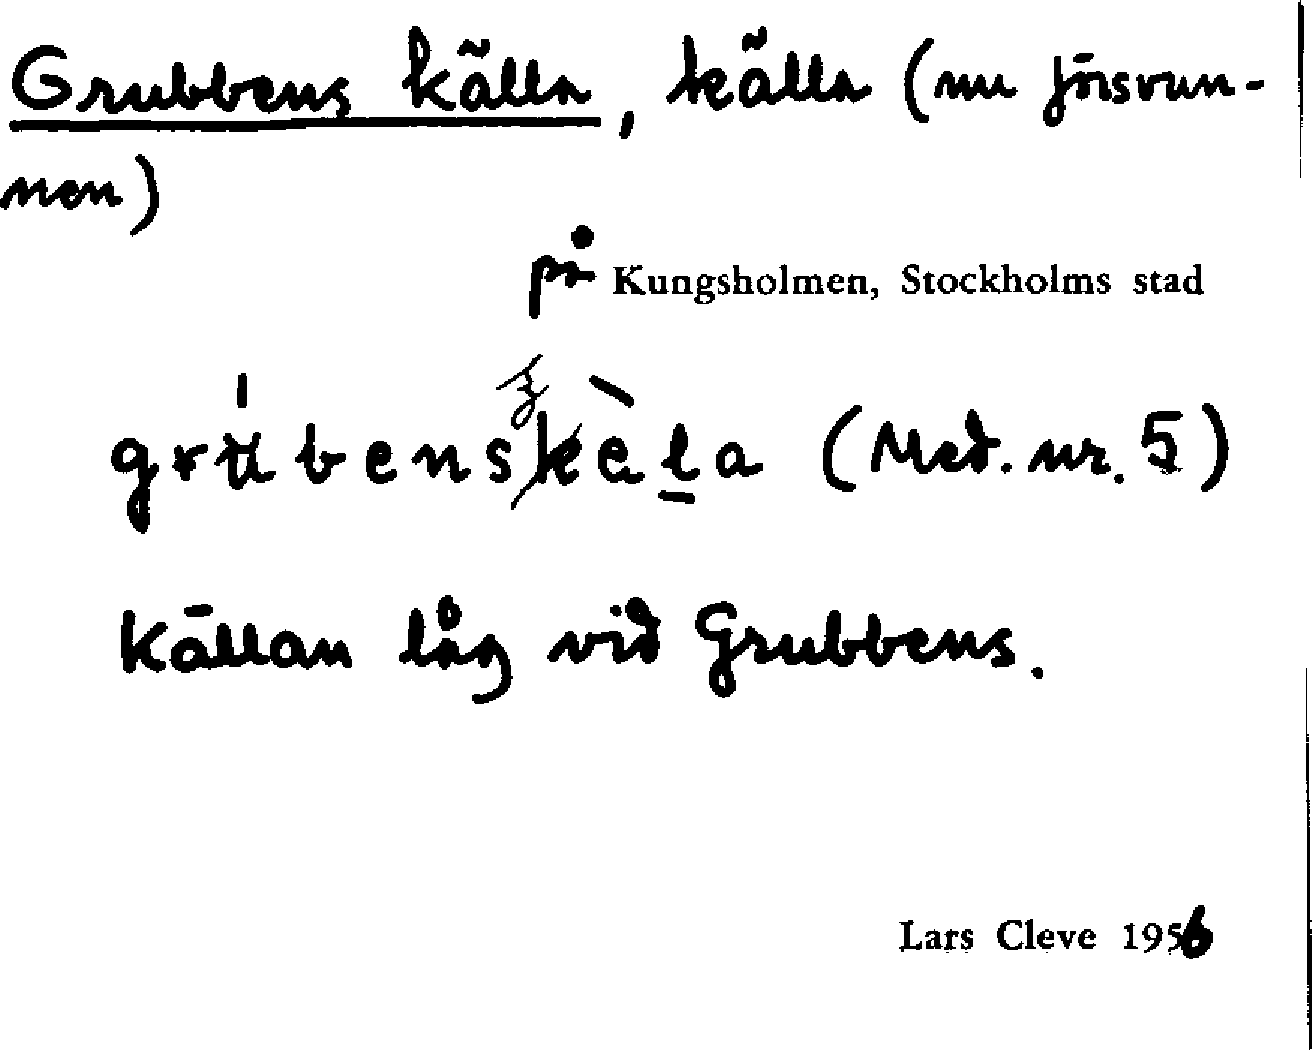 Grubbens källa, källa (nu försvun-
nen)
på Kungsholmen, Stockholms stad
(Med. nr. 5)
Källan låg vid Grubbens.
Lars Cleve 1956